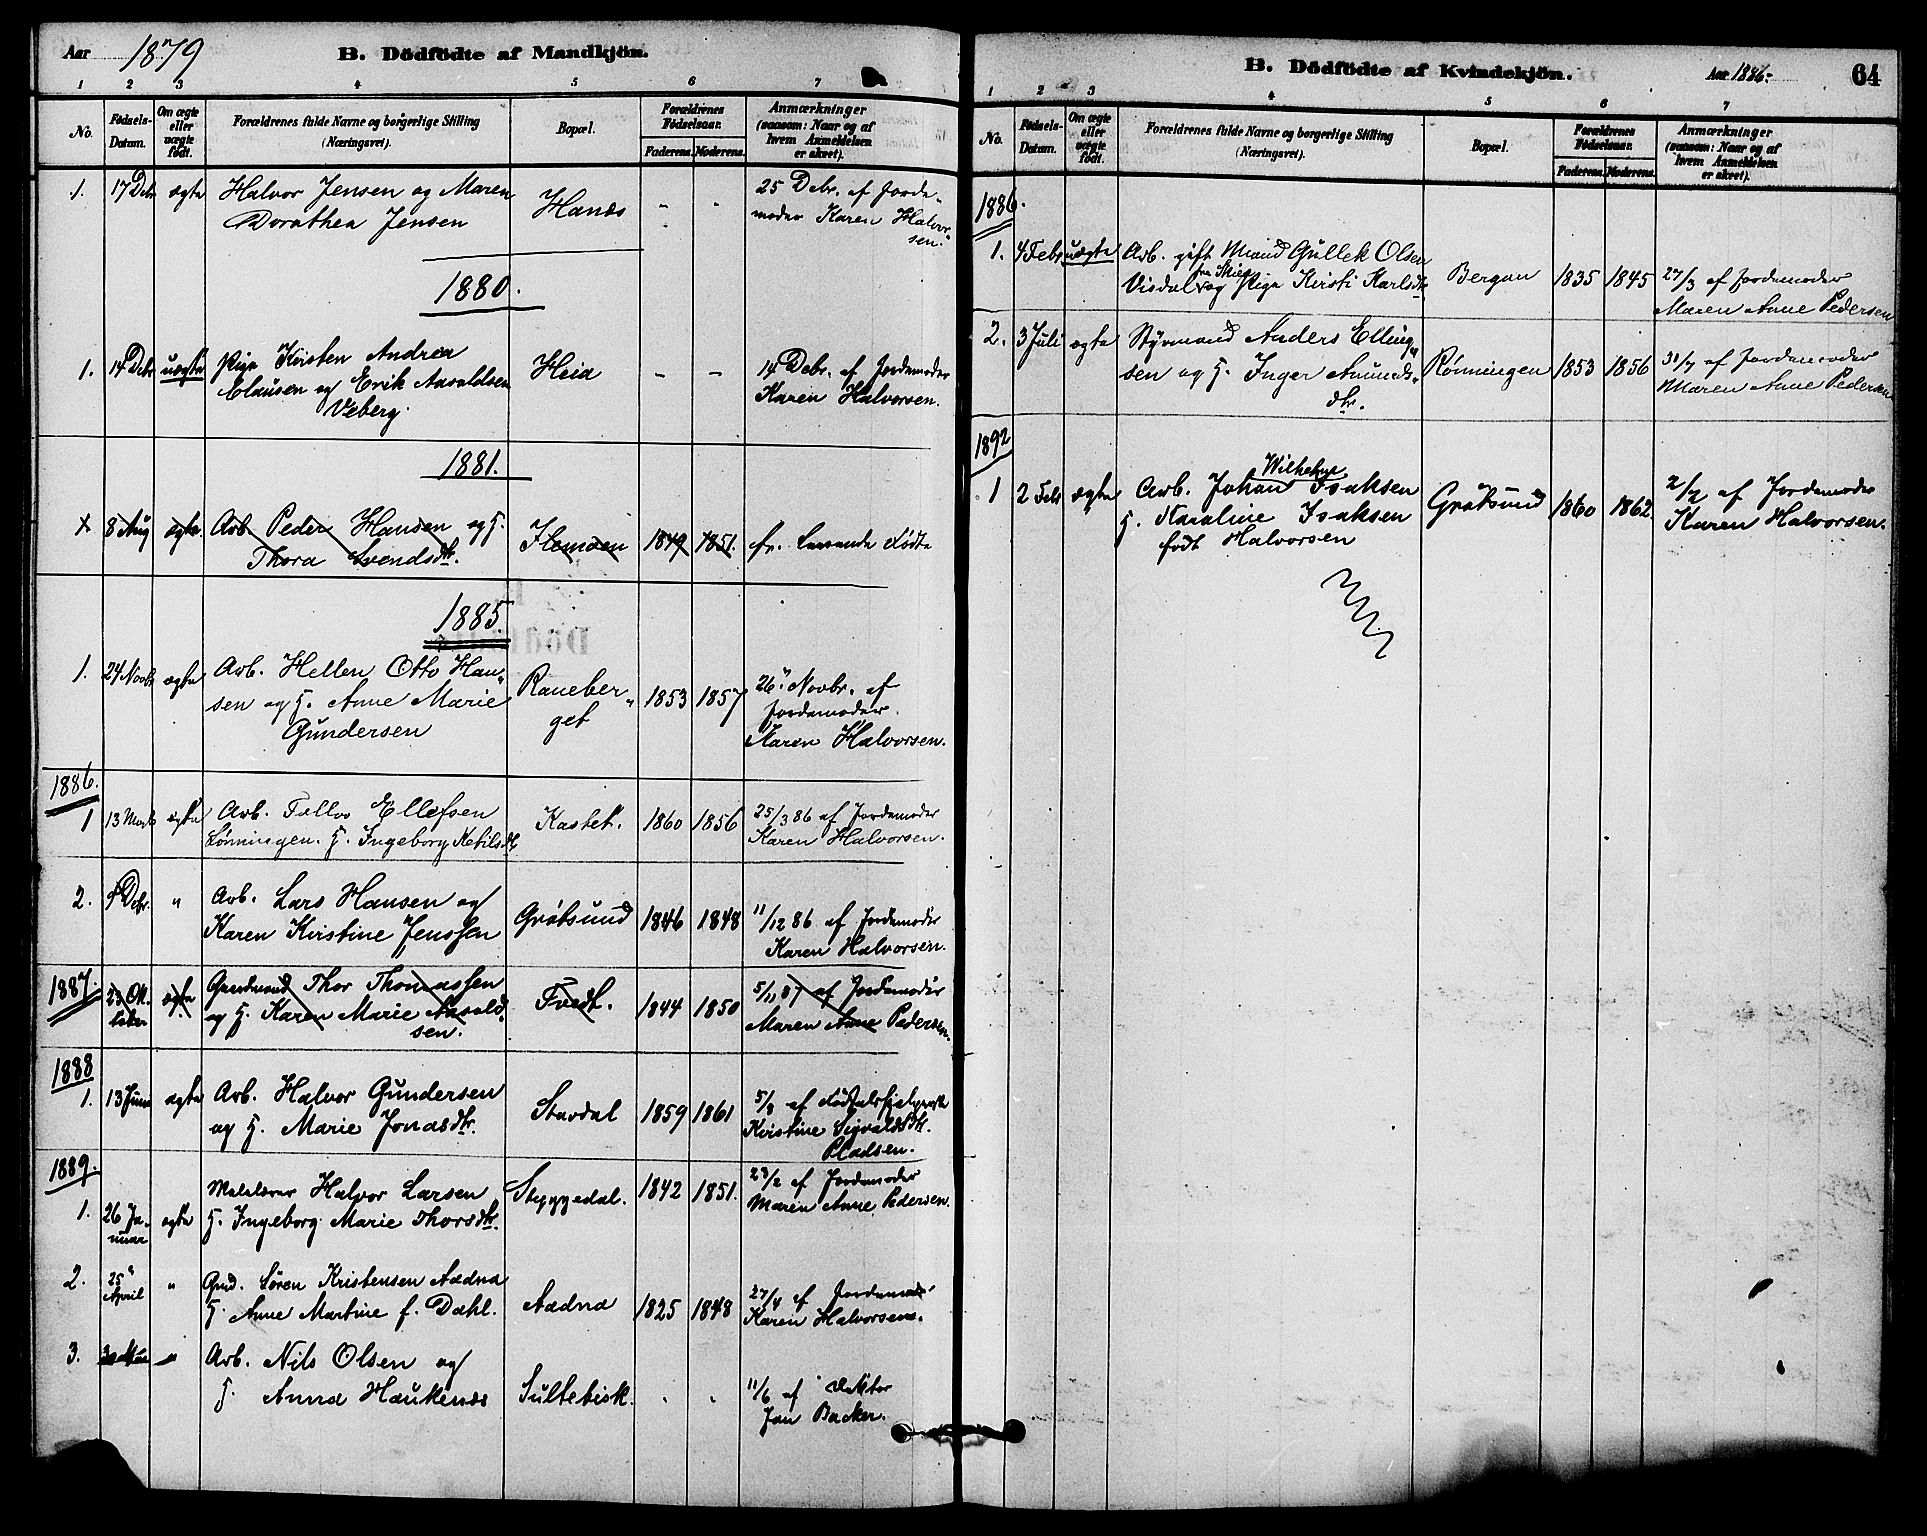 Aar 1879 B. Dödfödte af Mandkjön.
1 2 3 4 5 6 7
No. Födsels-Datum. Om ægte eller uægte födt. Forældrenes fulde Navne og borgerlige Stilling (Næringsvei). Bopæl. Forældrenes Födselsaar. Faderens. Moderens. Anmærkninger (saasom: Naar og af hvem Anmeldelsen er skeet).
1. 17 Debr ægte Halvor Jensen og Maren - - 25 Debr. af Jorde-
Dorathea Jensen moder Karen Halvor-
sen.
1880.
1. 14 Debr uægte Pige Kirsten Andrea Heia - - 14 Debr. af Jordemoder
Clausen og Erik Aasoldsen Karen Halvorsen.
Veberg.
1881.
8 Aug ægte. Arb. Peder Hansen og H. 1849 1851. fr. Levende Födte
Thora Svendsdtr.
1885
1. 24 Novbr ægte Arb. Hellen Otto Han- Raneber- 1853 1857 26. Novbr. af
sen og H. Anne Marie get Jordemoder
Gundersen Karen Halvorsen.
1886.
1 13 Marts ægte Arb. Tallov Ellefsen Kastet. 1860 1856 25/3 86 af Jordemoder
Lønningen. H. Ingeborg Ketilsdtr Karen Halvorsen.
2. Debr. " Arb. Lars Hansen og Gråtsund 1846 1848 11/12 86 af Jordemoder
Karen Kirstine Jenssen Karen Halvorsen.
1887. 23 Ok- ægte Gaardmand Thor Thomassen Tvedt. 1844 1850 5/11 87 af Jordemoder
tober og H. Karen Marie Aasold- Maren Anne Pedersen.
sen.
1888
1. 13 Juni ægte Arb. Halvor Gundersen Stavdal 1859 1861 5/8 af
og H. Marie Jonasdtr. Kirstine Sigvaldsdtr.
Pladsen.
1889.
1. 26 Ja- ægte Halvor Larsen Styggedal. 1842 1851. 23/2 af Jordemoder
nuar H. Ingeborg Marie Thorsdtr. Maren Anne Pedersen.
2. 25 April " Gmd. Sören Kristensen Aadna Aadna 1825 1848 27/4 af Jordemoder
H. Anne Martine f. Dahl. Karen Halvorsen.
3. " Arb. Nils Olsen og Sultebisk. . . 11/6 af Doktor
H. Anna Haukenæs Jan Backer.
B. Dödfödte af Kvindekjön. Aar 1886- 64
1 2 3 4 5 6 7
No. Födsels-Datum. Om ægte eller uægte födt. Forældrenes fulde Navne og borgerlige Stilling (Næringsvei). Bopæl. Forældrenes Födselsaar. Faderens. Moderens. Anmærkninger (saasom: Naar og af hvem Anmeldelsen er skeet).
1886.
1. 4 Febr uægte Arb. gift Mand Gullek Olsen Bergan 1835 1845 27/3 af Jordemoder
Visdal fra Skien og Pige Kirsti Karlsdtr Maren Anne Pedersen
2. 3 Juli ægte Styrmand Anders Elling- Rønningen 1853 1856 31/7 af Jordemoder
sen og H. Inger Amunds- Maren Anne Pedersen
dtr.
1892
1 2 Febr ægte Arb. Johan Wilhelm Isaksen Gråtsund 1860 1862. 2/2 af Jordemoder
H. Karoline Isaksen Karen Halvorsen.
født Halvorsen